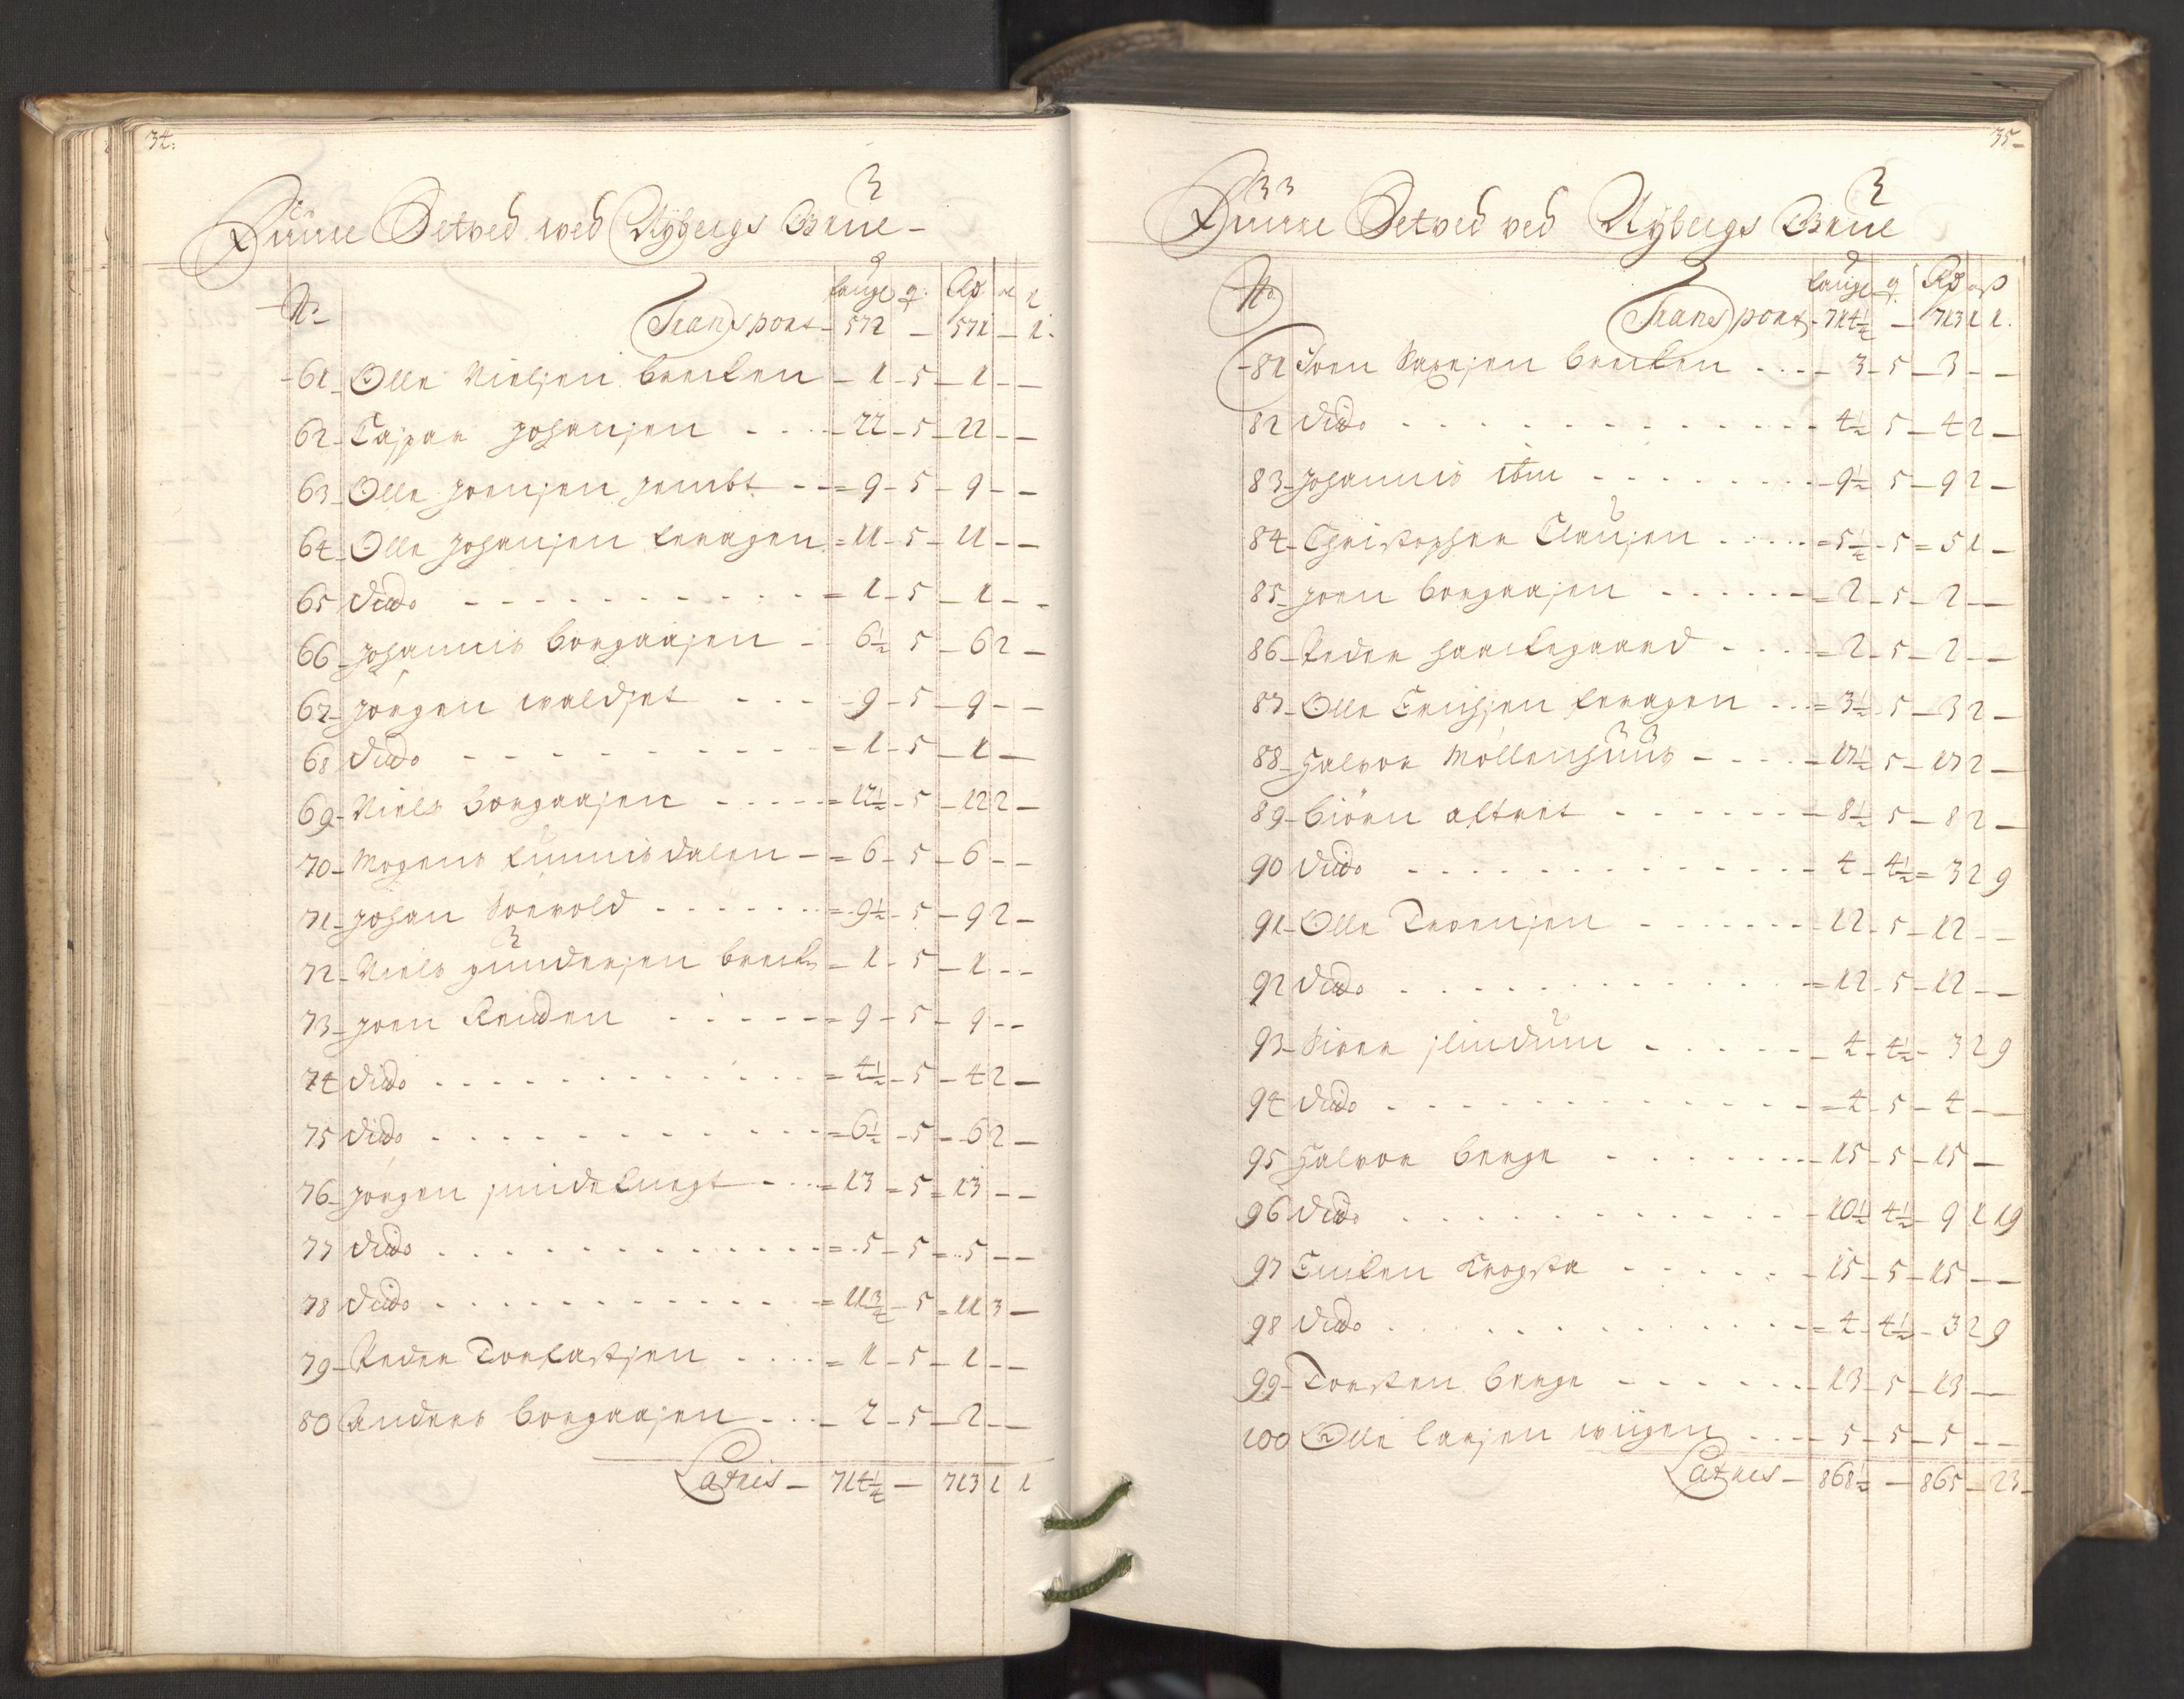 34.
Setved wed Nÿbergs Grue
No lauge q Rd
Transport 572 - 571 - 1.
61 Olle Nielsen brecken - 1 - 5 - 1 - -
62 Casper Johansen - 22 - 5 - 22 - -
63 Olle Joensen - 9 - 5 - 9 - -
64 Olle Johansen - 11 - 5 - 11 - -
65 dido - 1 - 5 - 1 - -
66 Johannis borgaasen - 6½ 5 - 6 2 -
67 Jörgen - 9 - 5 - 9 - -
68 dido - 1 - 5 - 1 -
69 Niels Borgaasen - 12½ - 5 - 12 2 -
70 Mogens - 6 - 5 - 6 - -
71 Johan - 9½ - 5 - 9 2 -
72 Niels gundersen breck - 1 - 5 - 1 - -
73 Joen - 9 - 5 - 9 - -
74 dido - 4½ - 5 - 4 2 -
75 dido - 6½ - 5 - 6 2 -
76 Jörgen - 13 - 5 - 13 - -
77 dido - 5 - 5 - 5 - -
78 dido - 11¾ - 5 - 11 3 -
79 Peder - 1 - 5 - 1 - -
80 Anders borgaasen - 2 - 5 - 2 - -
Latris - 714¼ - 713 1 1
35
Setved ved Nÿbergs Grue
No lauge q Rd ß
Transport - 714¼ - 713 1 1.
81 brecken - 3 - 5 - 3 - -
82 dido - 4½ 5 - 4 2 -
83 Johannis ibm - 9½ 5 - 9 2 -
84 Christopher Clausen - 5¼ - 5 - 5 1 -
85 Joen borgaasen - 2 - 5 - 2 - -
86 Peder - 2 - 5 - 2 - -
87 Olle Erichsen - 3½ - 5 - 3 2 -
88 Halvor Möllenhuus - 17½ 5 - 17 2 -
89 biörn - 8½ 5 - 8 2 -
90 dido - 4 - 4½ - 3 2 9
91 Olle - 12 - 5 - 12 - -
92 dido - 12 - 5 - 12 - -
93 - 4 - 4½ - 3 2 9
94 dido - 4 - 5 - 4 - -
95 Halvor berge - 15 - 5 - 15 -
96 dido - 10½ 4½ - 9 1 19
97 - 15 - 5 - 15 - -
98 dido - 4 - 4½ - 3 2 9
99 Torsten berge - 13 - 5 - 13 -
100 Olle larsen - 5 - 5 - 5 - -
Latris - 868½ - 865 - 23 -